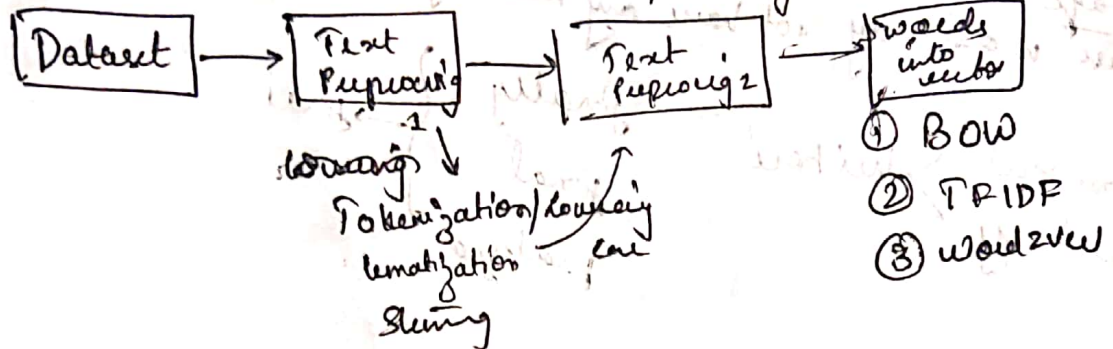 Dataset
Text
Preprocessing
1
Text
Preprocessing 2
words
into
vectors
① BOW
② TFIDF
③ Word2vec
Tokenization/Lowering
case
lematization
Stemming